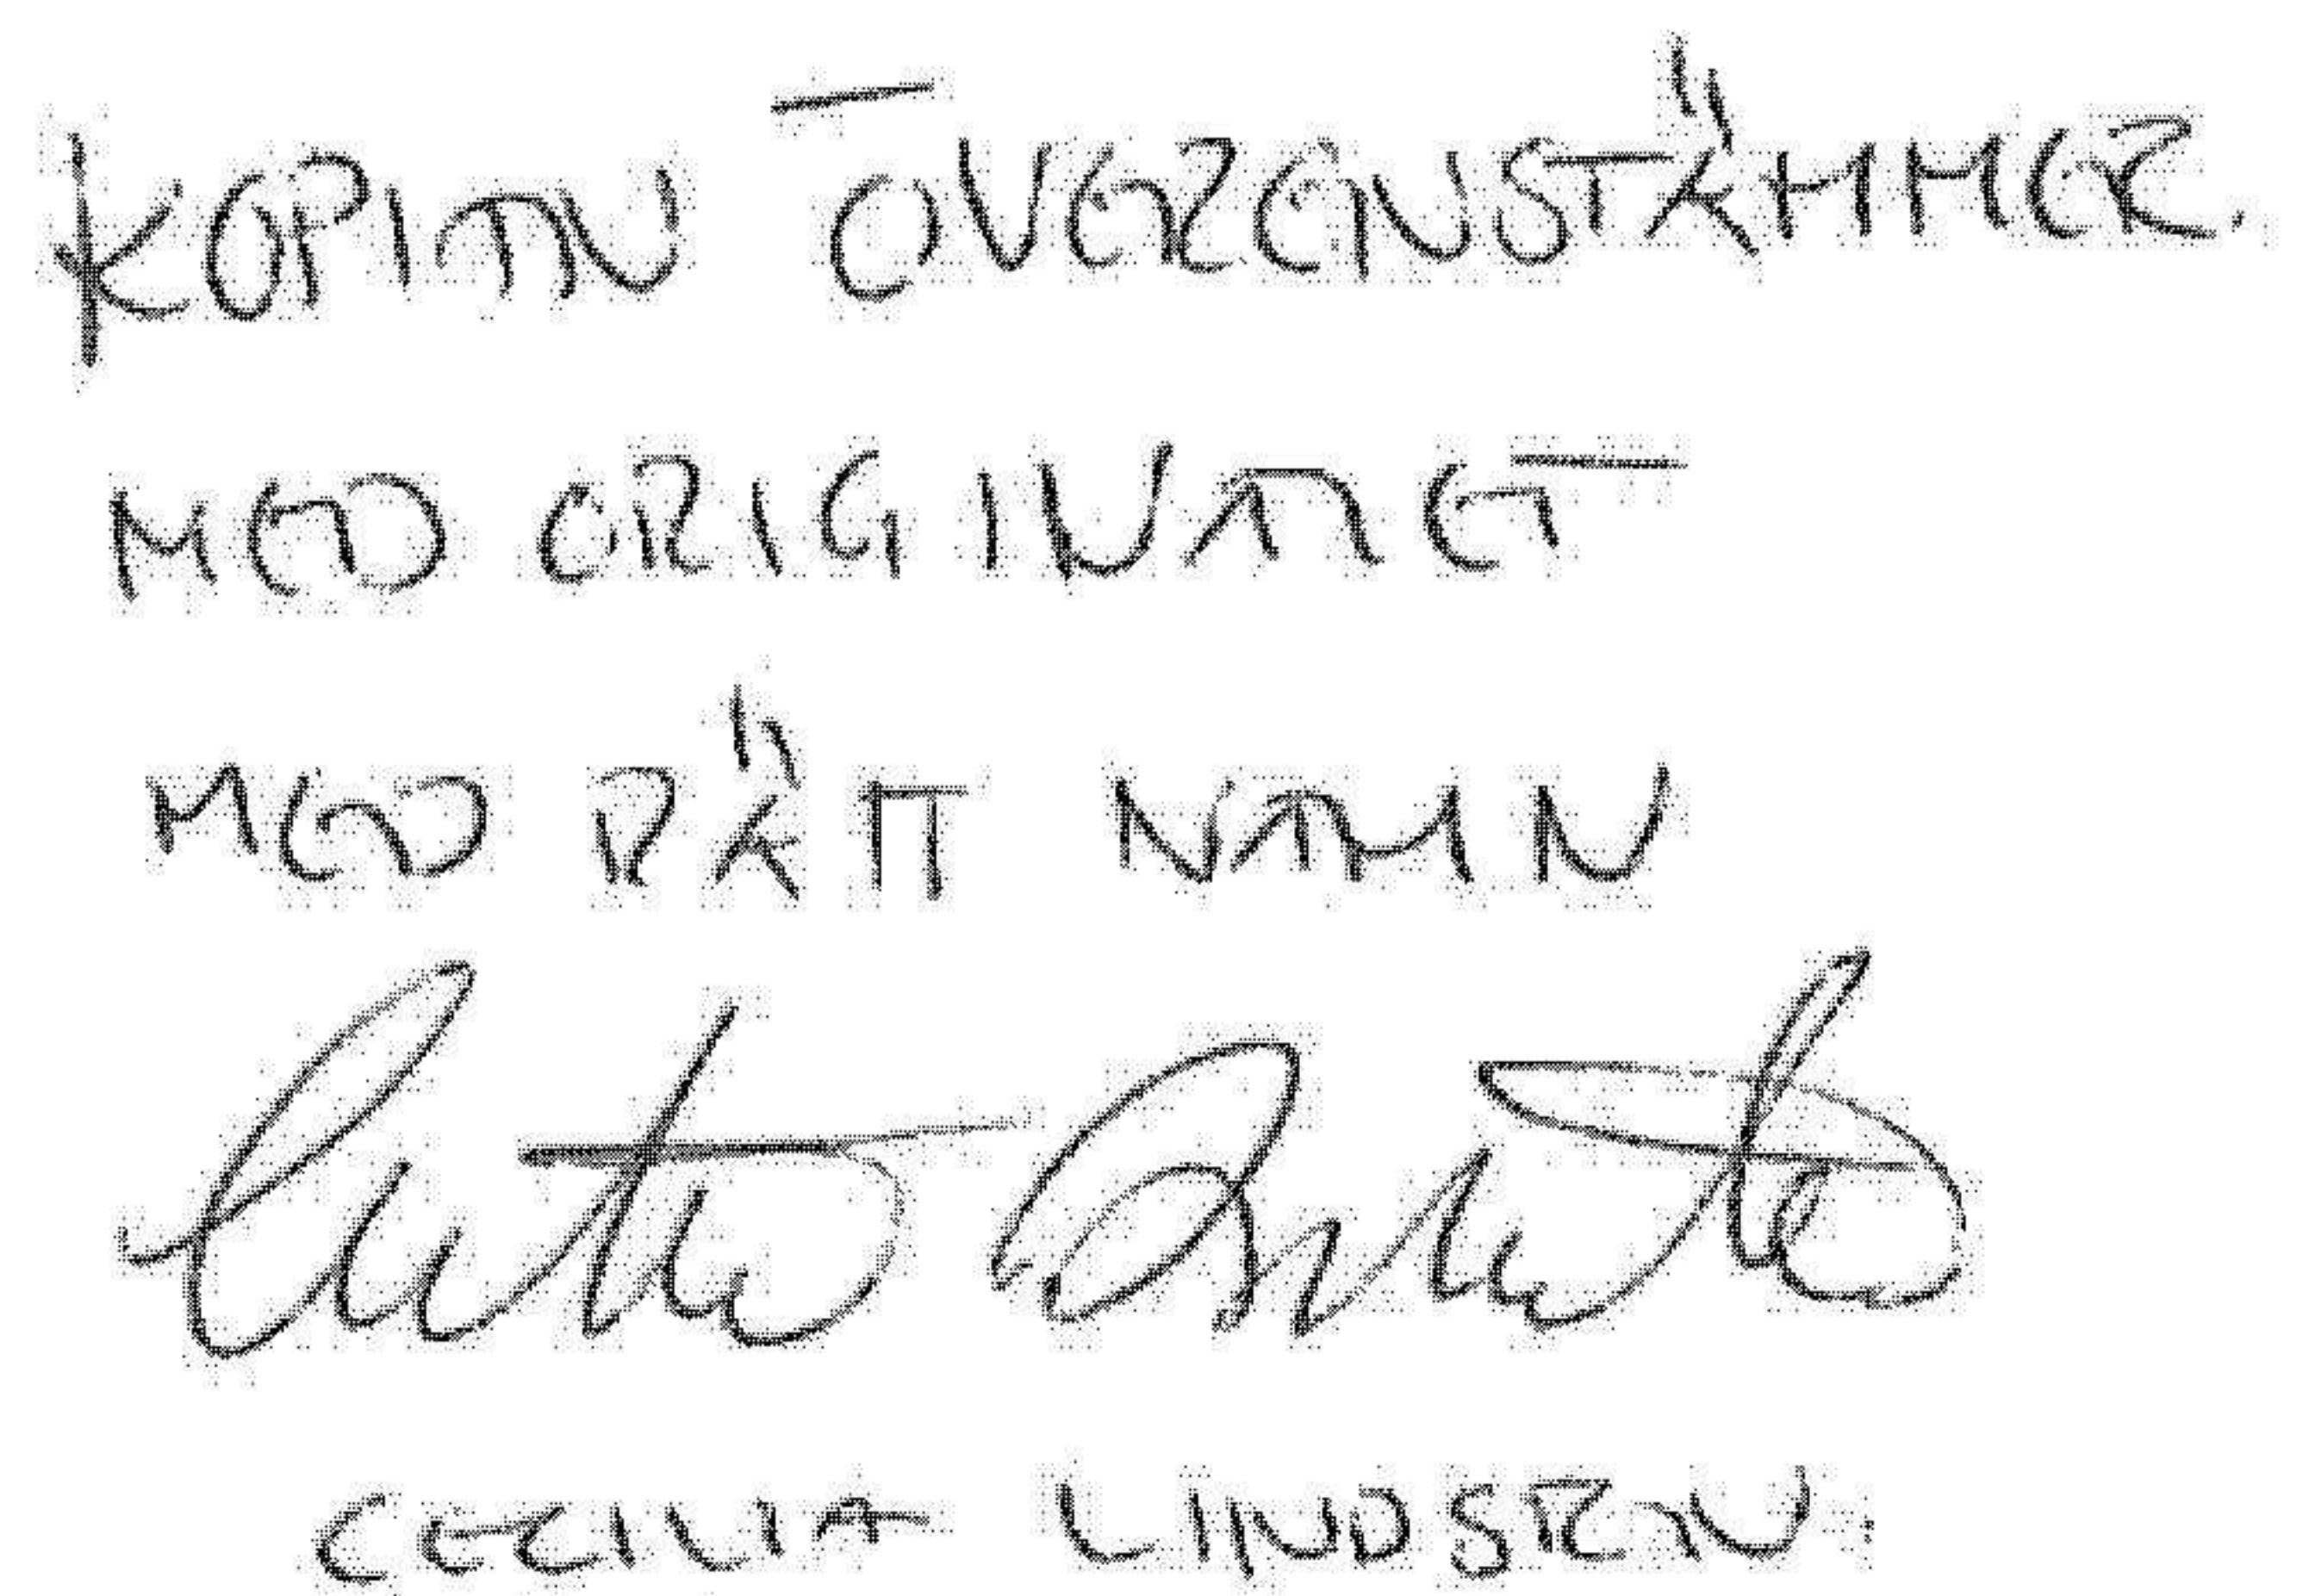 KOPIAN ÖVERENSTÄMMER.
MED ORIGINALET
MED RÄTT NAMN
CECILIA LINDSTEN